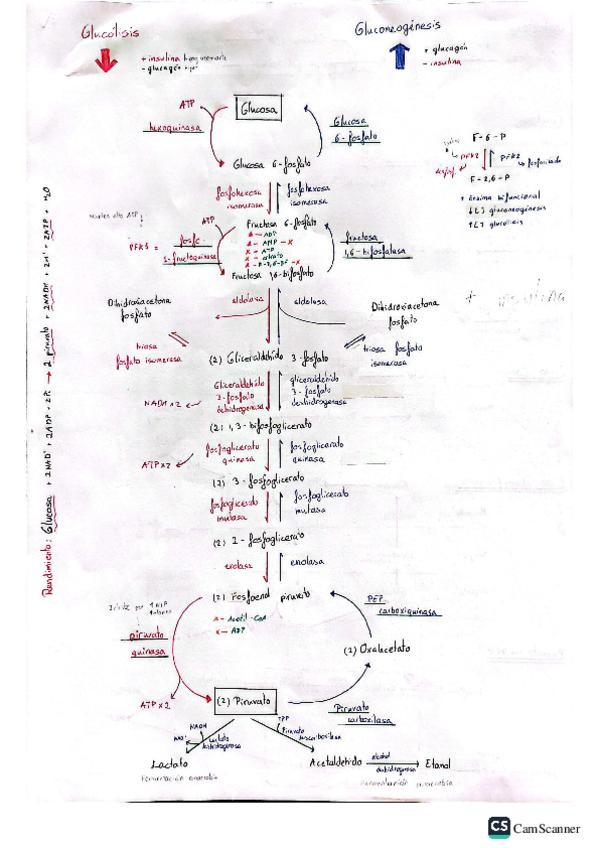 Glucólisis
Gluconeogénesis
+ insulina
- glucagón
+ glucagón
- insulina
ATP
Glucosa
hexoquinasa
Glucosa
6-fosfato
Glucosa 6-fosfato
F-6-P
PFK2
PFK2
F-2,6-P
enzima bifuncional
gluconeogénesis
glucólisis
fosfohexosa
isomerasa
fosfohexosa
isomerasa
ATP
Fructosa 6-fosfato
ADP
AMP - X
ATP
citrato
F-2,6-BF - X
PFK1 =
fosfo-
1-fructoquinasa
fructosa
1,6-bifosfatasa
Fructosa 1,6-bifosfato
+ insulina
Dihidroxiacetona
fosfato
aldolasa
aldolasa
Dihidroxiacetona
fosfato
triosa
fosfato isomerasa
triosa fosfato
isomerasa
(2) Gliceraldehído 3-fosfato
Gliceraldehído
3-fosfato
dehidrogenasa
gliceraldehído
3-fosfato
deshidrogenasa
NADH x2
(2) 1,3-bifosfoglicerato
fosfoglicerato
quinasa
fosfoglicerato
quinasa
ATP x2
(2) 3-fosfoglicerato
fosfoglicerato
mutasa
fosfoglicerato
mutasa
(2) 2-fosfoglicerato
enolasa
enolasa
(2) Fosfoenol piruvato
Acetil-CoA
ADP
PEP
carboxiquinasa
piruvato
quinasa
(2) Oxalacetato
ATP x2
(2) Piruvato
Piruvato
carboxilasa
NADH
NAD+
Lactato
deshidrogenasa
TPP
Piruvato
descarboxilasa
Lactato
Acetaldehído
alcohol
deshidrogenasa
Etanol
Fermentación anaerobia
Fermentación anaerobia
Rendimiento: Glucosa + 2NAD+ + 2ADP + 2Pi → 2 piruvato + 2NADH + 2H+ + 2ATP + H2O
CS CamScanner